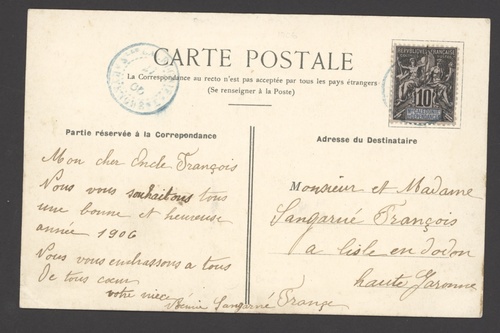 CARTE POSTALE
La Correspondance au recto n'est pas acceptée par tous les pays étrangers
(Se renseigner à la Poste)
REPUBLIQUE FRANÇAISE
10
Partie réservée à la Correpondance
Mon cher Oncle François
Nous vous souhaitons tous
une bonne et heureuse
année 1906
Nous vous embrassons a tous
De tous cœur
votre niece
Sangarné
Adresse du Destinataire
Monsieur et Madame
Sangarné François
a lisle en dodon
haute Garonne
France